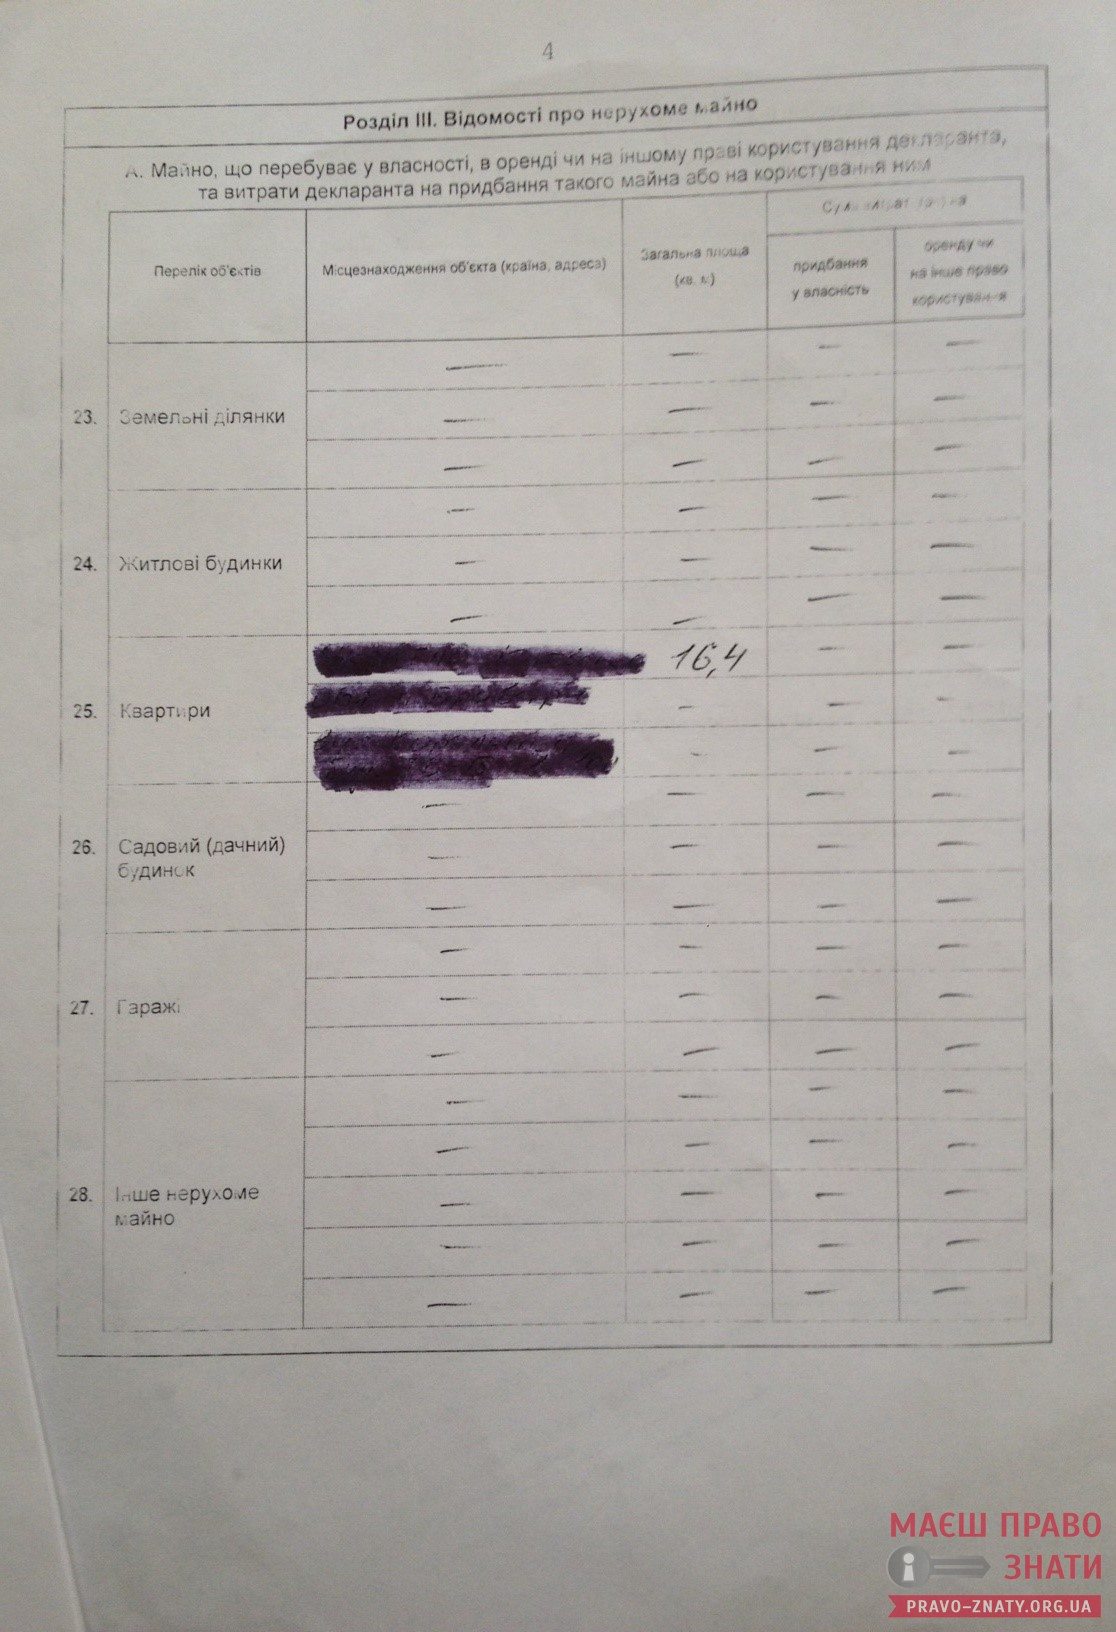 4
Розділ III. Відомості про нерухоме майно
А. Майно, що перебуває у власності, в оренді чи на іншому праві користування декларанта,
та витрати декларанта на придбання такого майна або на користування ним
Перелік об'єктів
Місцезнаходження об'єкта (країна, адреса)
Загальна площа
(кв. м)
придбання
у власність
оренду чи
на інше право
користування
— — — —
— — — —
23. Земельні ділянки
— — — —
— — — —
24. Житлові будинки
— — — —
— — — —
16,4 — —
25. Квартири
— — —
— — —
— — — —
26. Садовий (дачний)
будинок
— — — —
— — — —
— — — —
27. Гаражі
— — — —
— — — —
— — — —
— — — —
28. Інше нерухоме
майно
— — — —
— — — —
— — — —
МАЄШ ПРАВО
ЗНАТИ
PRAVO-ZNATY.ORG.UA